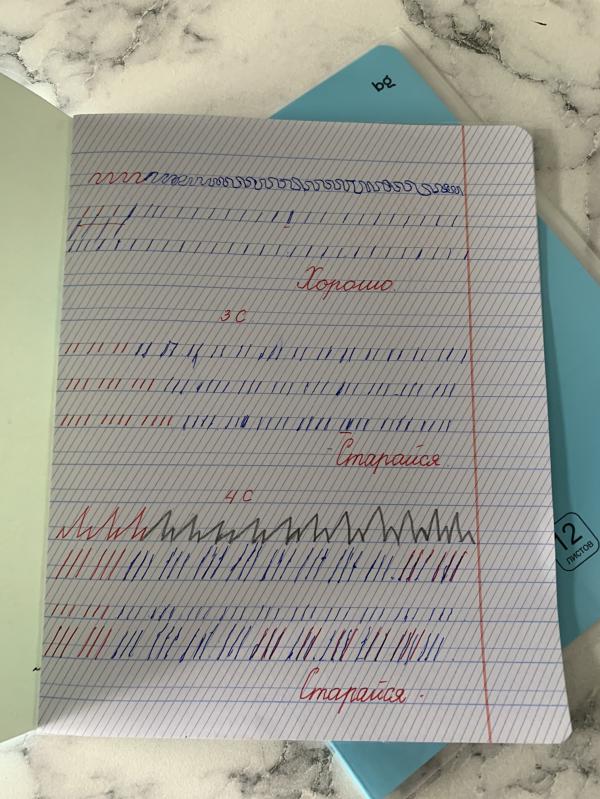 bg
Хорошо
3 С
Старайся
4 С
12
листов
Старайся.